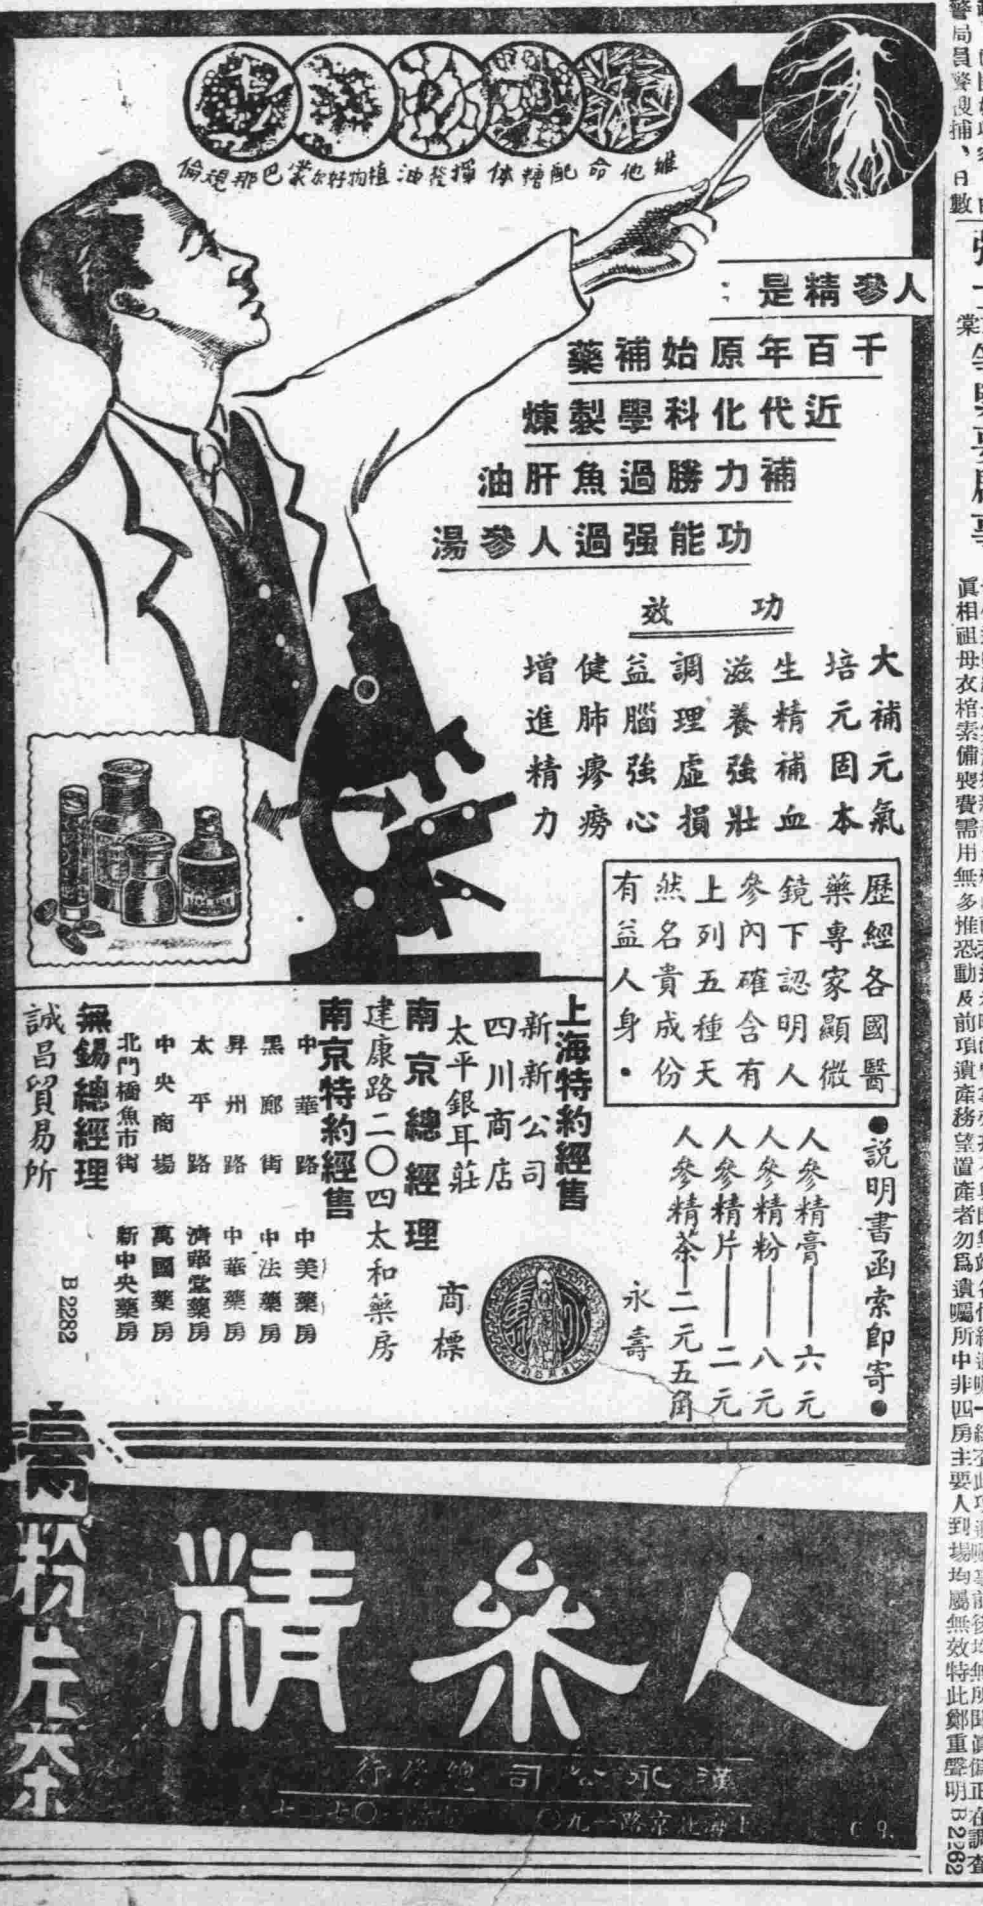 維他命
配糖体
揮發油
植物好尔蒙
巴那規倫
人參精是：
千百年原始補藥
近代化科學製煉
補力勝過魚肝油
功能强過人參湯
功效
大補元氣
培元固本
生精補血
滋養強壯
調理虛損
益腦強心
健肺療癆
增進精力
歷經各國醫
藥專家顯微
鏡下認明人
參內確含有
上列五種天
然名貴成份
有益人身．
●説明書函索即寄●
人參精膏——六元
人參精粉——八元
人參精片——二元
人參精茶—二元五角
永壽
商標
上海特約經售
新新公司
四川商店
太平銀耳莊
南京總經理
建康路二〇四太和藥房
南京特約經售
中華路 中美藥房
黑廊街 中法藥房
昇州路 中華藥房
太平路 濟華堂藥房
中央商場 萬國藥房
北門橋魚市街 新中央藥房
無錫總經理
誠昌貿易所
B 2282
人參精
膏粉片茶
漢永公司總發行
上海北京路一九〇
C 9.
警局員警搜捕、日數
眞相祖母衣棺素備喪費需用無多惟恐動及前項遺產務望置產者勿爲遺囑所中非四房主要人到場均屬無效特此鄭重聲明B2262